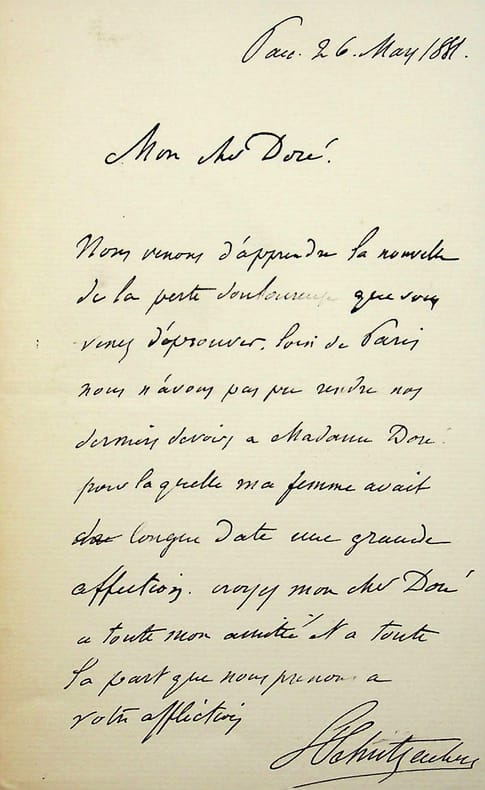 Pau. 26. May 1881.
Mon cher Doré.
Nous venons d'apprendre la nouvelle
de la perte douloureuse que vous
venez d'éprouver. loin de Paris
nous n'avons pas pu rendre nos
derniers devoirs a Madame Doré
pour laquelle ma femme avait
longue date une grande
affection. croyez mon cher Doré
a toute mon amitié et a toute
la part que nous prenons a
votre affliction
LSchutzenberger